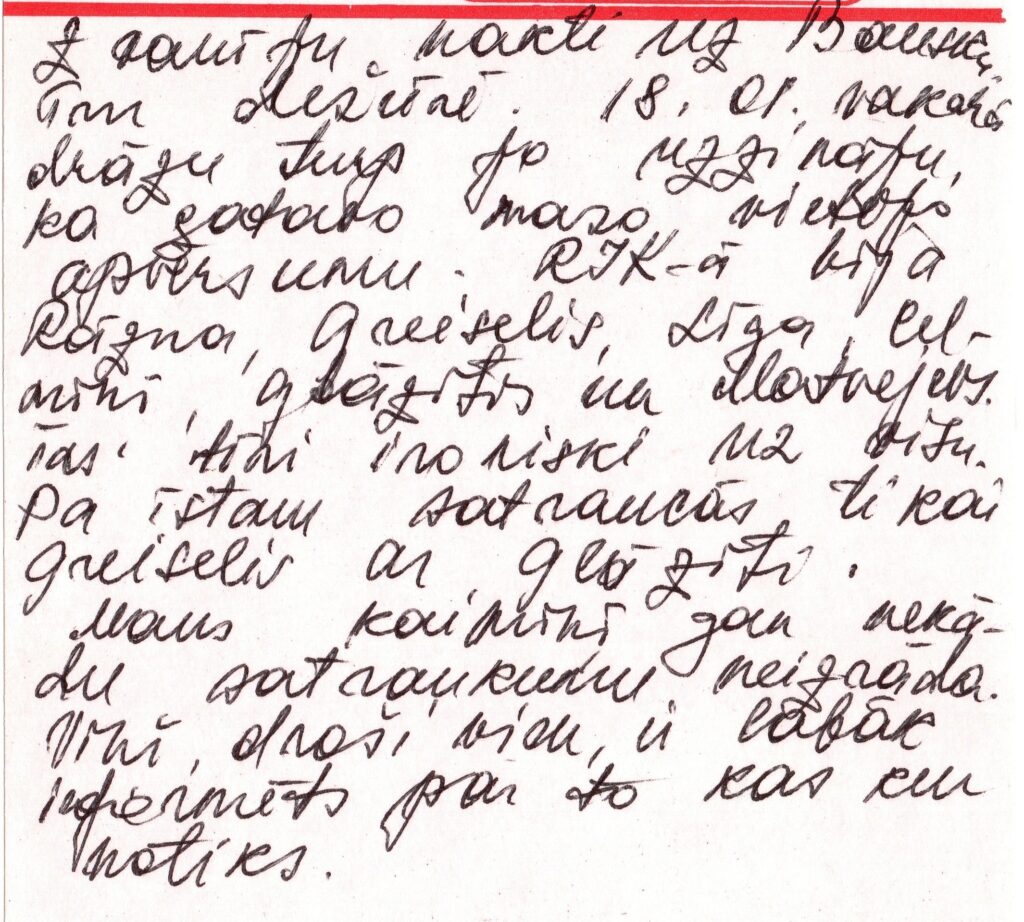 Z rautju nakti uz Bausku
un dežūrē. 18. 01. vakarā
drāžu turp jo uzzināju,
ka gatavo maso vietējo
apvērsumu. RIK-ā bija
Rāzna, Greiselis, Līga, Cel-
miņi, Glāzītis un Matvejevs.
Tas tiņi ironiski uz visu.
Pa īstam satraucās tikai
Greiselis ar Glāzīti.
Mans kaimiņi gan nekā-
du satraukumu neizrāda.
Viņi, droši vien, ir labāk
informēts par to kas kur
notiks.